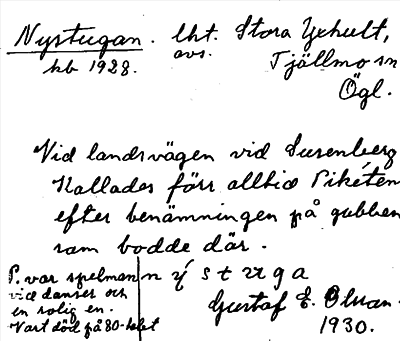 Nystugan. lht. Stora Yxhult,
avs. Tjällmo sn
kb 1928. Ögl.
Vid landsvägen vid Susenberg
Kallades förr alltid Pikéten
efter benämningen på gubben
som bodde där.
n ý s t u g a
P. var spelman
vid danser och
en rolig en.
Vart död på 80-talet
Gustaf E. Olsson.
1930.